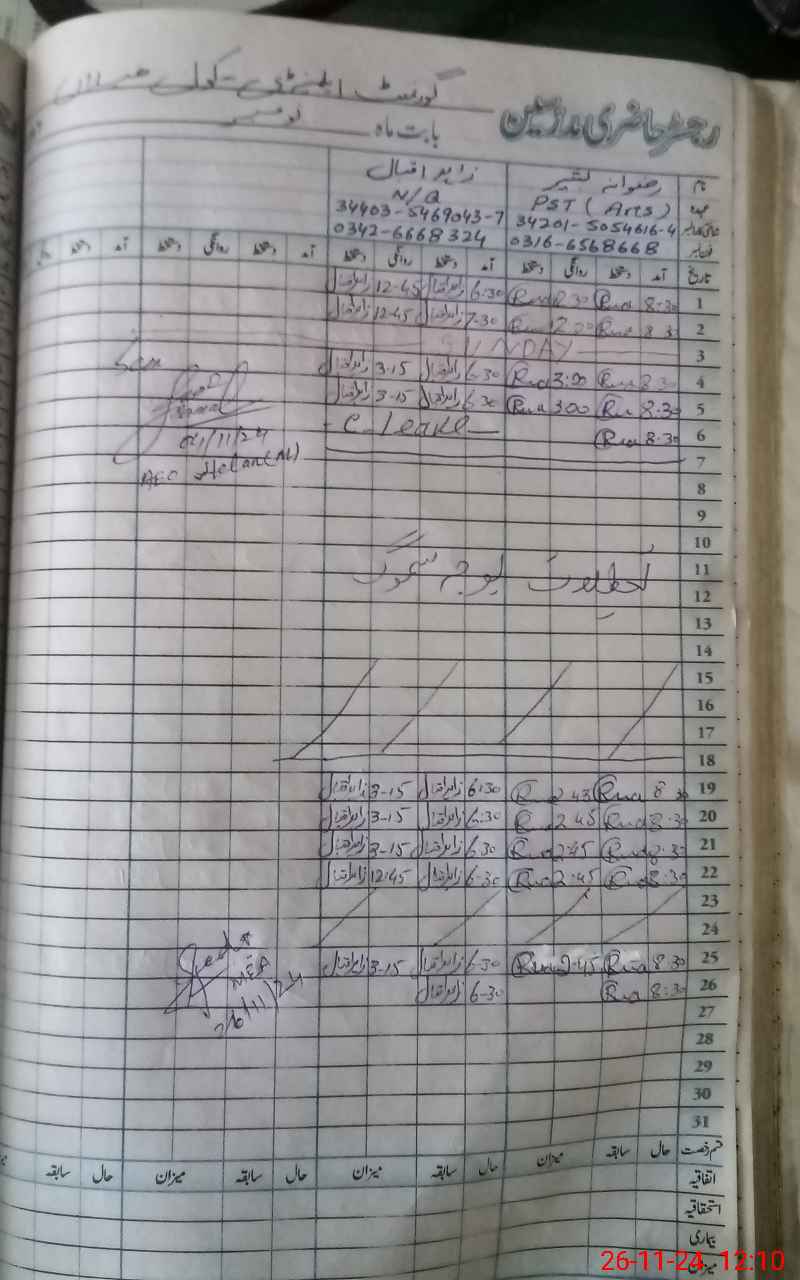 رجسٹر حاضری مدرسین
گورنمنٹ ایلیمنٹری سکول
بابت ماہ نومبر
نام رضوانہ زاہد اقبال
عہدہ PST (Arts) N/Q
34201-5054616-4 34403-5469043-7
0316-6568668 0342-6668324
تاریخ آمد دستخط روانگی دستخط آمد دستخط روانگی دستخط آمد دستخط روانگی دستخط آمد دستخط
1 8:30 Rua Rua 6-30 زاہد اقبال 12-45 زاہد اقبال
2 Rua Rua 7-30 زاہد اقبال 12-45 زاہد اقبال
3 SUNDAY
4 8:30 Rua 3:00 Rua 6-30 زاہد اقبال 3-15 زاہد اقبال
5 8:30 Rua 300 Rua 6-30 زاہد اقبال 3-15 زاہد اقبال
6 8:30 Rua C-Leave
7
8
9
10
11
12
تعطیلات بوجہ سموگ
13
14
15
16
17
18
19 Rua Rua 6:30 زاہد اقبال 3-15 زاہد اقبال
20 8:30 Rua 2:45 Rua 6:30 زاہد اقبال 3-15 زاہد اقبال
21 8:30 Rua 2:45 Rua 6-30 زاہد اقبال 3-15 زاہد اقبال
22 8:30 Rua 2:45 Rua 6-30 زاہد اقبال 12:45 زاہد اقبال
23
24
25 8:30 Rua 2-45 Rua 6-30 زاہد اقبال 3-15 زاہد اقبال
26 8:30 Rua 6-30 زاہد اقبال
27
28
29
30
31
/11/24
AEO
MEA
26/11/24
قسم رخصت حال سابقہ میزان حال سابقہ میزان حال سابقہ میزان حال سابقہ
اتفاقیہ
استحقاقیہ
بیماری
میزان
26-11-24 12:10